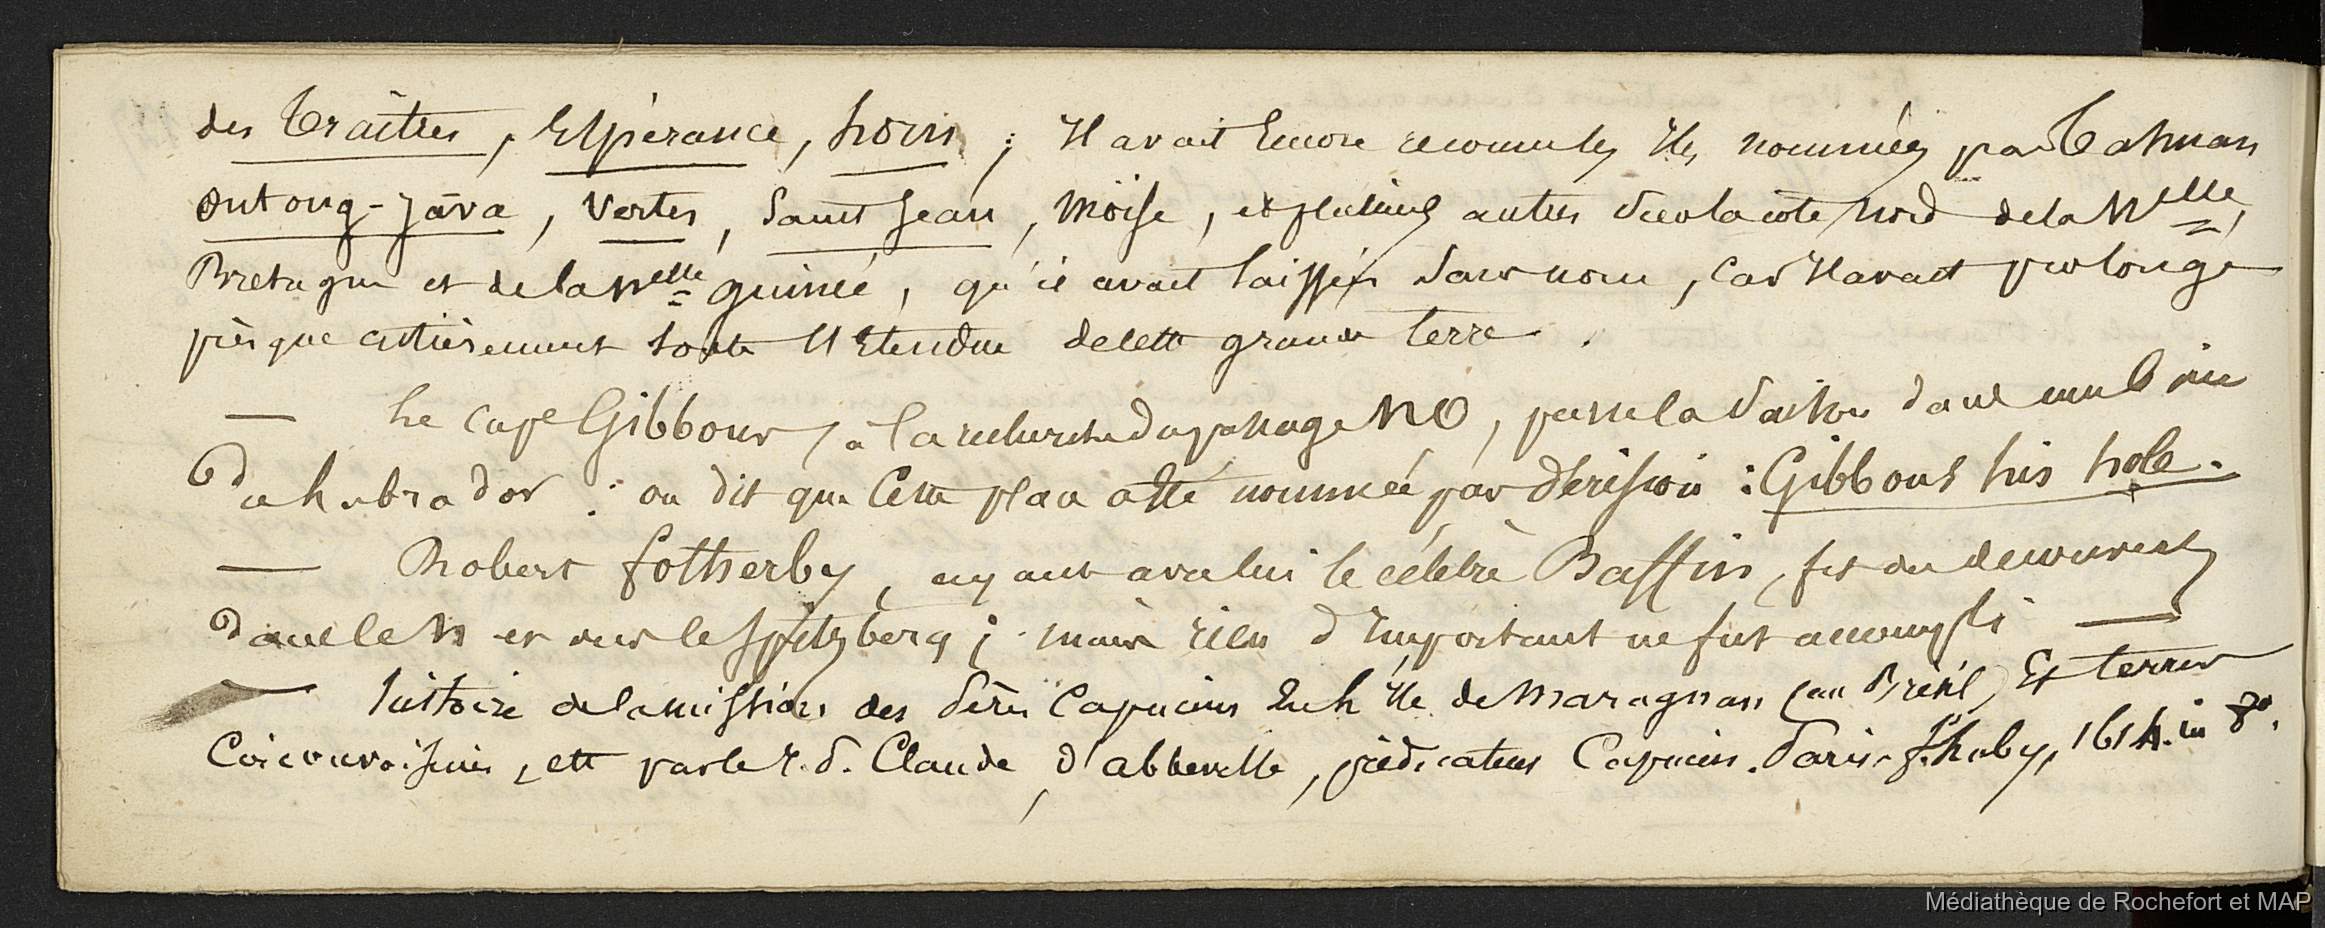 des Traîtres, Espérance, horn ; Il avait Encore reconnu les Iles nommées par Tasman
Ontong-Java, Vertes, Saint Jean, Moïse, et plusieurs autres vers la côte Nord de la Nelle
Bretagne et de la Nelle guinée, qu'il avait laissées sans nom, Car Il avait prolongé
prèsque entièrement toute l'Etendue de cette grande terre.
— Le Cape Gibbons, à la recherche du passage NO, passe la saison dans une baie
du Labrador : on dit que Cette place a été nommée par dérision : Gibbons his hole.
— Robert fotherby, ayant avec lui le célèbre Baffin, fit des découvertes
dans le N et vers le Spitzberg ; mais rien d'Important ne fut accompli —
— histoire de la mission des Pères Capucins En L'Ile de Maragnan (au Brésil) Et terres
Circonvoisines, ett par le R. P. Claude d'abbeville, prédicateur Capucin. Paris. f. huby, 1614. in 8º.
Médiathèque de Rochefort et MAP